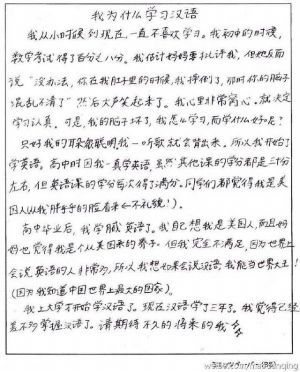 我为什么学习汉语
我从小时候到现在，一直不喜欢学习。我初中的时候，
数学考试得了百分之八分。我估计妈妈要批评我，但她反而
说“没办法，你在我肚里的时候，我摔倒了，那时你的脑子
混乱不清了”然后大声笑起来了。我心里非常窝心。就决定
学习认真。可是，我的脑子坏了，我怎么学习，而学什么好呢？
只好我的耳朵很聪明，我一听歌就会背出来，所以我开始了
学英语。高中时因我一真学英语，虽然其他课的学分都是三十分
左右，但英语课的学分每次得了满分。同学们都觉得我是美
国人(从我胖乎乎的脸看来←不礼貌！)。
高中毕业后，我学腻英语了。我自己想我是美国人，而且妈
妈也觉得我是个从美国来的养子。但我完全不满足，因为世界上
会说英语的人非常多，所以我想如果会说汉语，我能当世界大王！
(因为我知道中国世界上最大的国家)。
我上大学才开始学汉语了。现在汉语学了三年了。我觉得已经
差不多掌握汉语了。请期待不久的将来的我